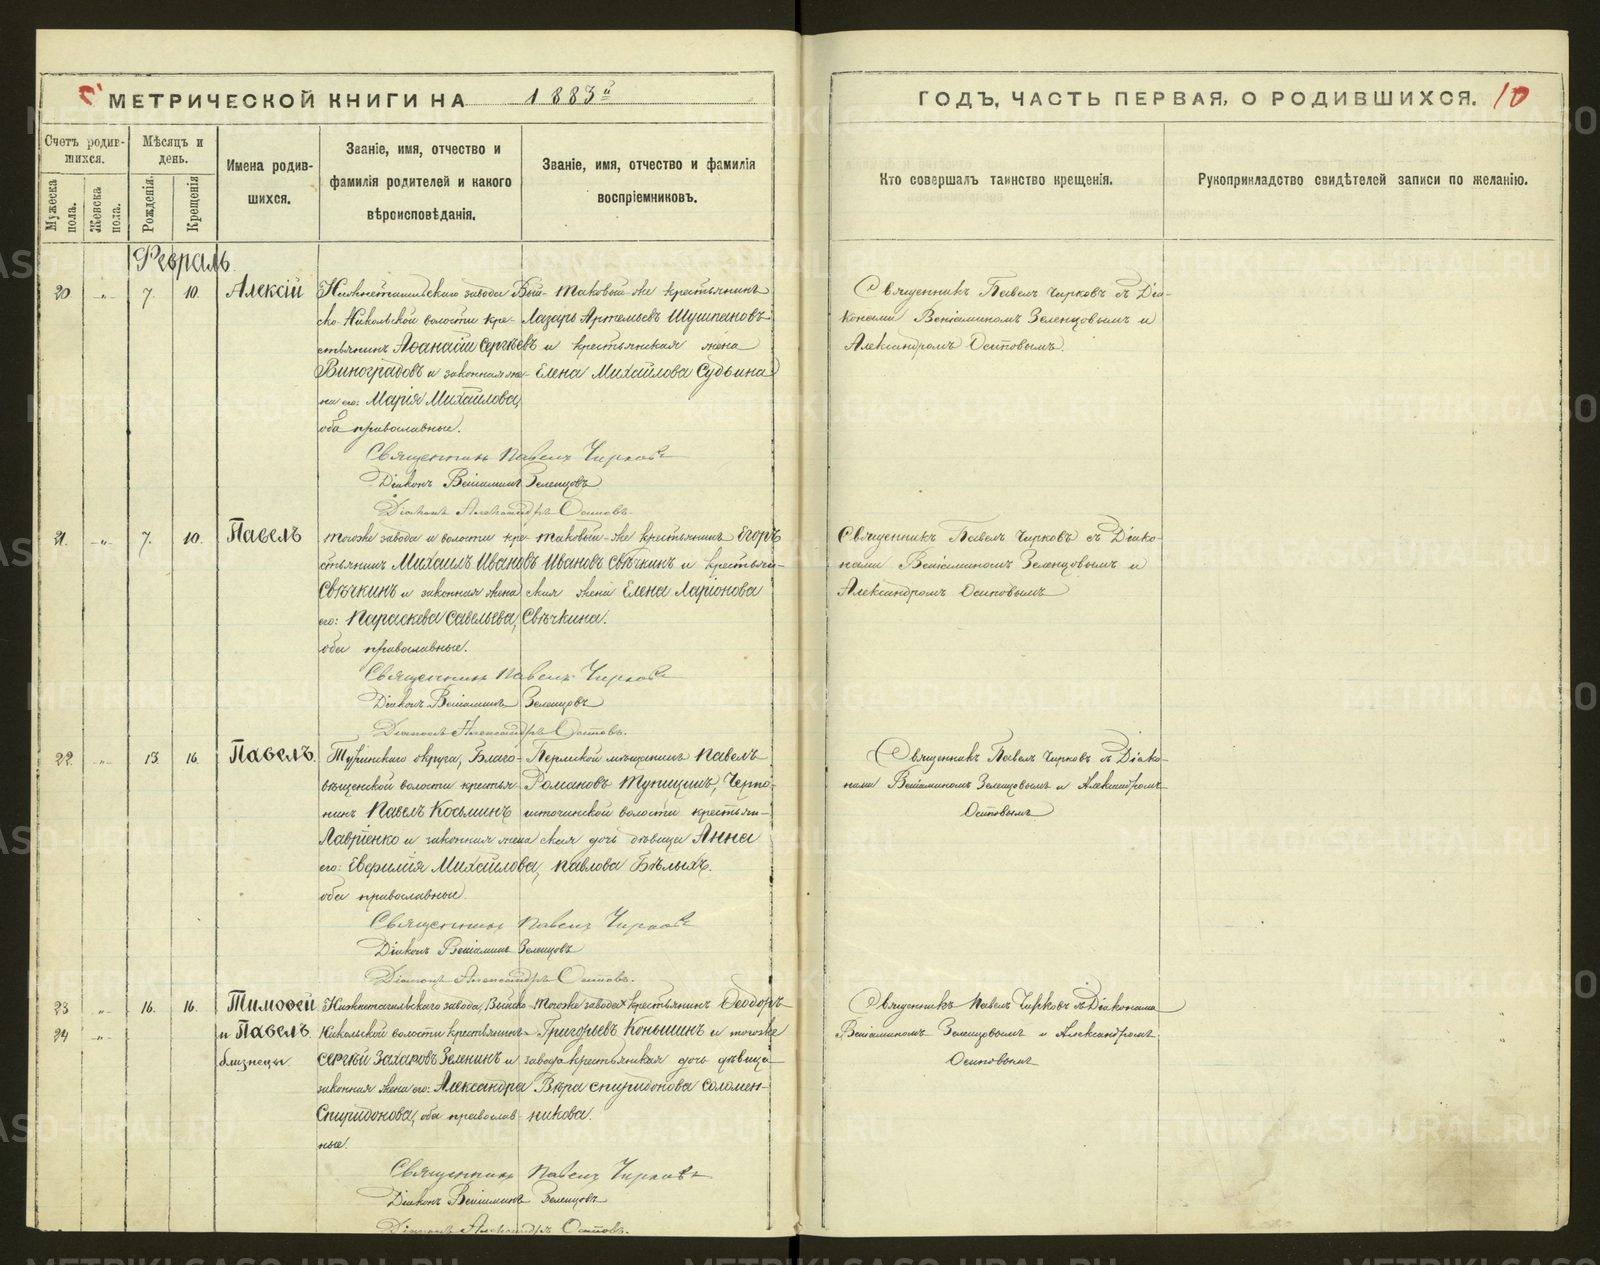 МЕТРИЧЕСКОЙ КНИГИ НА 1883й
ГОДЪ, ЧАСТЬ ПЕРВАЯ, О РОДИВШИХСЯ. 10
Счетъ родив-
шихся.
Мужеска пола.
Женска пола.
Мѣсяцъ и
день.
Рожденія.
Крещенія
Имена родив-
шихся.
Званіе, имя, отчество и
фамилія родителей и какого
вѣроисповѣданія.
Званіе, имя, отчество и фамилія
воспріемниковъ.
Кто совершалъ таинство крещенія.
Рукоприкладство свидѣтелей записи по желанію.
Февраль
20 „ 7. 10. Алексій
Нижнетагильскаго завода Вый-
ско-Никольской волости кре-
стьянинъ Аѳанасій Сергѣевъ
Виноградовъ и законная же-
на его: Марія Михайлова,
оба православные.
Таковой-же крестьянинъ
Лазарь Артемьевъ Шушпановъ
и крестьянская жена
Елена Михайлова Судьина
Священникъ Павелъ Чирковъ съ Діа-
конами Веніаминомъ Зеленцовымъ и
Александромъ Осиповымъ.
Священникъ Павелъ Чирковъ
Діаконъ Веніаминъ Зеленцовъ
Діаконъ Александръ Осиповъ.
21. „ 7. 10. Павелъ
тогоже завода и волости кре-
стьянинъ Михаилъ Ивановъ
Свѣчкинъ и законная жена
его: Параскева Савельева,
оба православные.
таковый-же крестьянинъ Егоръ
Ивановъ Свѣчкинъ и крестьян-
ская жена Елена Ларіонова
Свѣчкина.
Священникъ Павелъ Чирковъ съ Діако-
нами Веніаминомъ Зеленцовымъ и
Александромъ Осиповымъ
Священникъ Павелъ Чирковъ
Діаконъ Веніаминъ Зеленцовъ
Діаконъ Александръ Осиповъ.
22 „ 13 16. Павелъ.
Туринскаго округа, Благо-
вѣщенской волости крестья-
нинъ Павелъ Косминъ
Лавріенко и законная жена
его: Евфимія Михайлова,
оба православные
Пермской мѣщанинъ Павелъ
Романовъ Тупицынъ, Черно-
источинской волости крестьян-
ская дочь дѣвица Анна
Павлова Бѣлыхъ.
Священникъ Павелъ Чирковъ съ Діако-
нами Веніаминомъ Зеленцовымъ и Александромъ
Осиповымъ
Священникъ Павелъ Чирковъ
Діаконъ Веніаминъ Зеленцовъ
Діаконъ Александръ Осиповъ.
23 „ 16. 16. Тимоѳей
24 „ и Павелъ
близнецы.
Нижнетагильскаго завода, Выйско-
Никольской волости крестьянинъ
Сергѣй Захаровъ Зеленинъ и
законная жена его: Александра
Спиридонова, оба православ-
ные.
Тогоже завода крестьянинъ Ѳеодоръ
Григорьевъ Коньшинъ и тогоже
завода крестьянская дочь дѣвица
Вѣра Спиридонова Соломен-
никова.
Священникъ Павелъ Чирковъ съ Діаконами
Веніаминомъ Зеленцовымъ и Александромъ
Осиповымъ
Священникъ Павелъ Чирковъ
Діаконъ Веніаминъ Зеленцовъ
Діаконъ Александръ Осиповъ.
METRIKI.GASO-URAL.RU